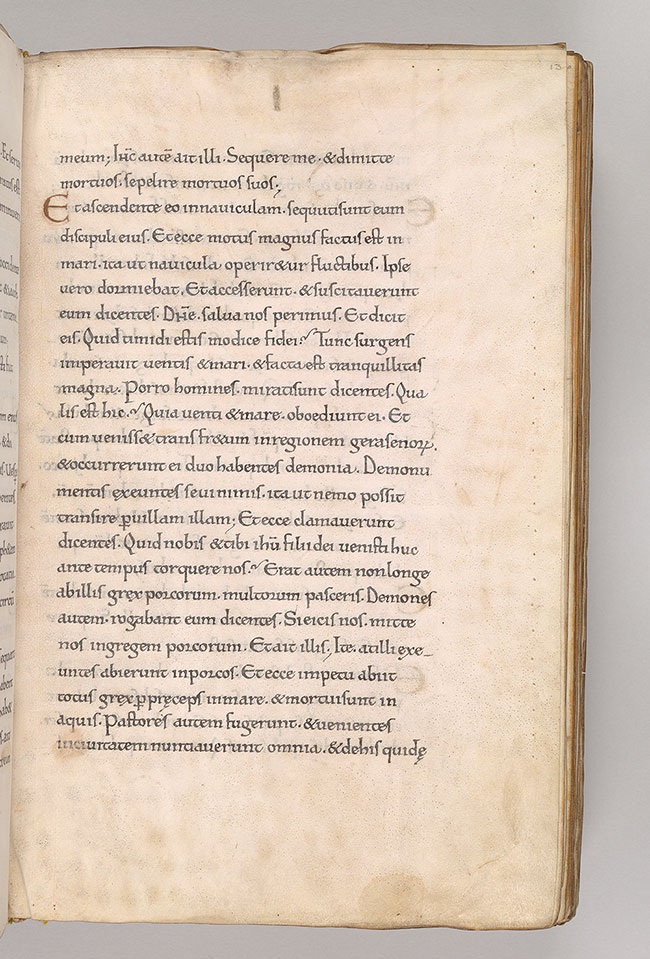 13
meum; Ihc̄ autē ait illi. Sequere me. &dimitte
mortuos. sepelire mortuos suos;
Et ascendente eo innaviculam. sequutisunt eum
discipuli eius. Et ecce motus magnus factus est in
mari. ita ut navicula operir&ur fluctibus. Ipse
vero dormiebat. Et accesserunt. &suscitaverunt
eum dicentes. Dn̄e. salva nos perimus. Et dicit
eis. Quid timidi estis modice fidei? Tunc surgens
imperavit ventis &mari. &facta est tranquillitas
magna. Porro homines. miratisunt dicentes. Qua
lis est hic? Quia venti &mare. oboediunt ei. Et
cum veniss& transfr&um inregionem gerasenoꝝ.
&occurrerunt ei duo habentes demonia. Demonu
mentis ęxeuntes sevi nimis. ita ut nemo possit
transire ꝑviillam illam; Et ecce clamaverunt
dicentes. Quid nobis &tibi ihū fili dei venisti huc
ante tempus torquere nos? Erat autem nonlonge
abillis gręx porcorum. multorum pasceris. Demones
autem. rogabant eum dicentes. Si eicis nos. mitte
nos ingregem porcorum. Et ait illis; Ite. at illi ęxe-
untes abierunt inporcos. Et ecce impetu abiit
totus gręx ꝑpręceps inmare. &mortuisunt in
aquis. Pastores autem fugerunt. &venientes
incivitatem nuntiaverunt omnia. &dehis quidę